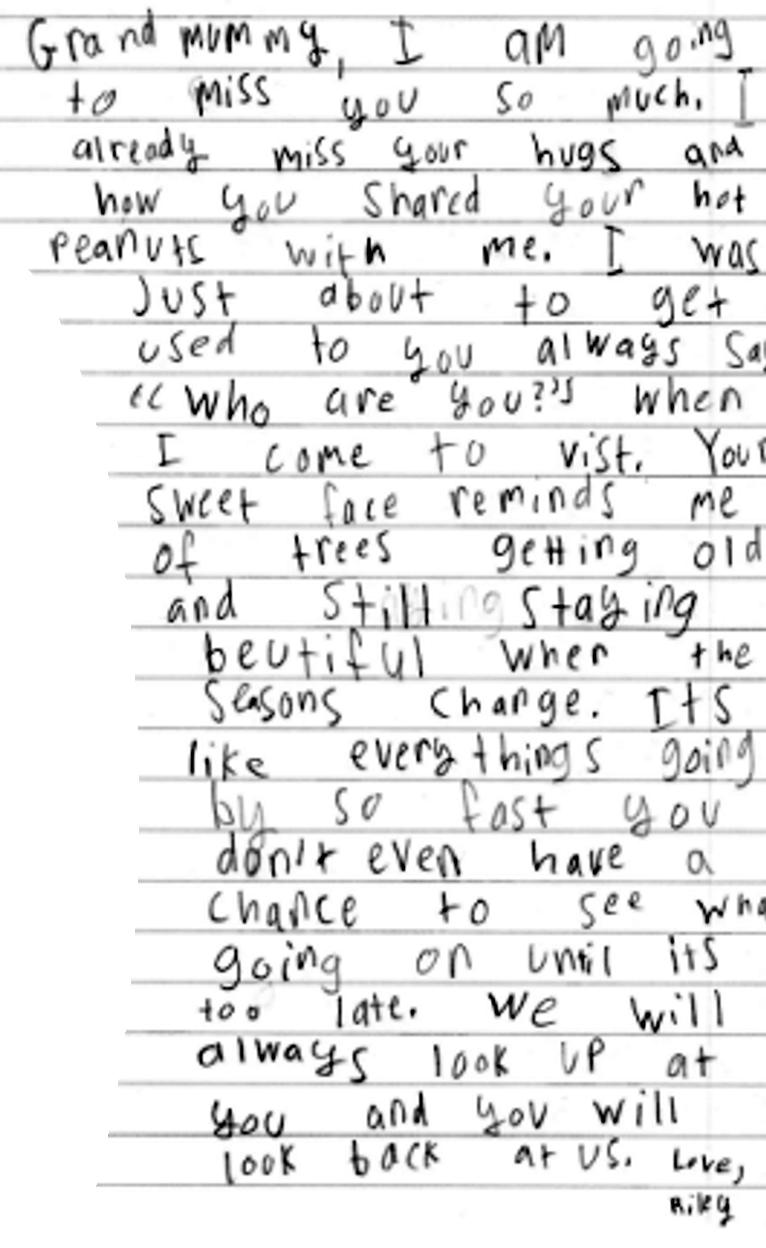 Grandmummy, I am going
to miss you so much. I
already miss your hugs and
how you shared your hot
peanuts with me. I was
Just about to get
used to you always sa
“Who are you?” when
I come to vist. Your
sweet face reminds me
of trees getting old
and still staying
beutiful when the
seasons change. Its
like everythings going
by so fast you
don't even have a
chance to see wha
going on until its
too late. We will
always look up at
you and you will
look back at us. Love,
Riley